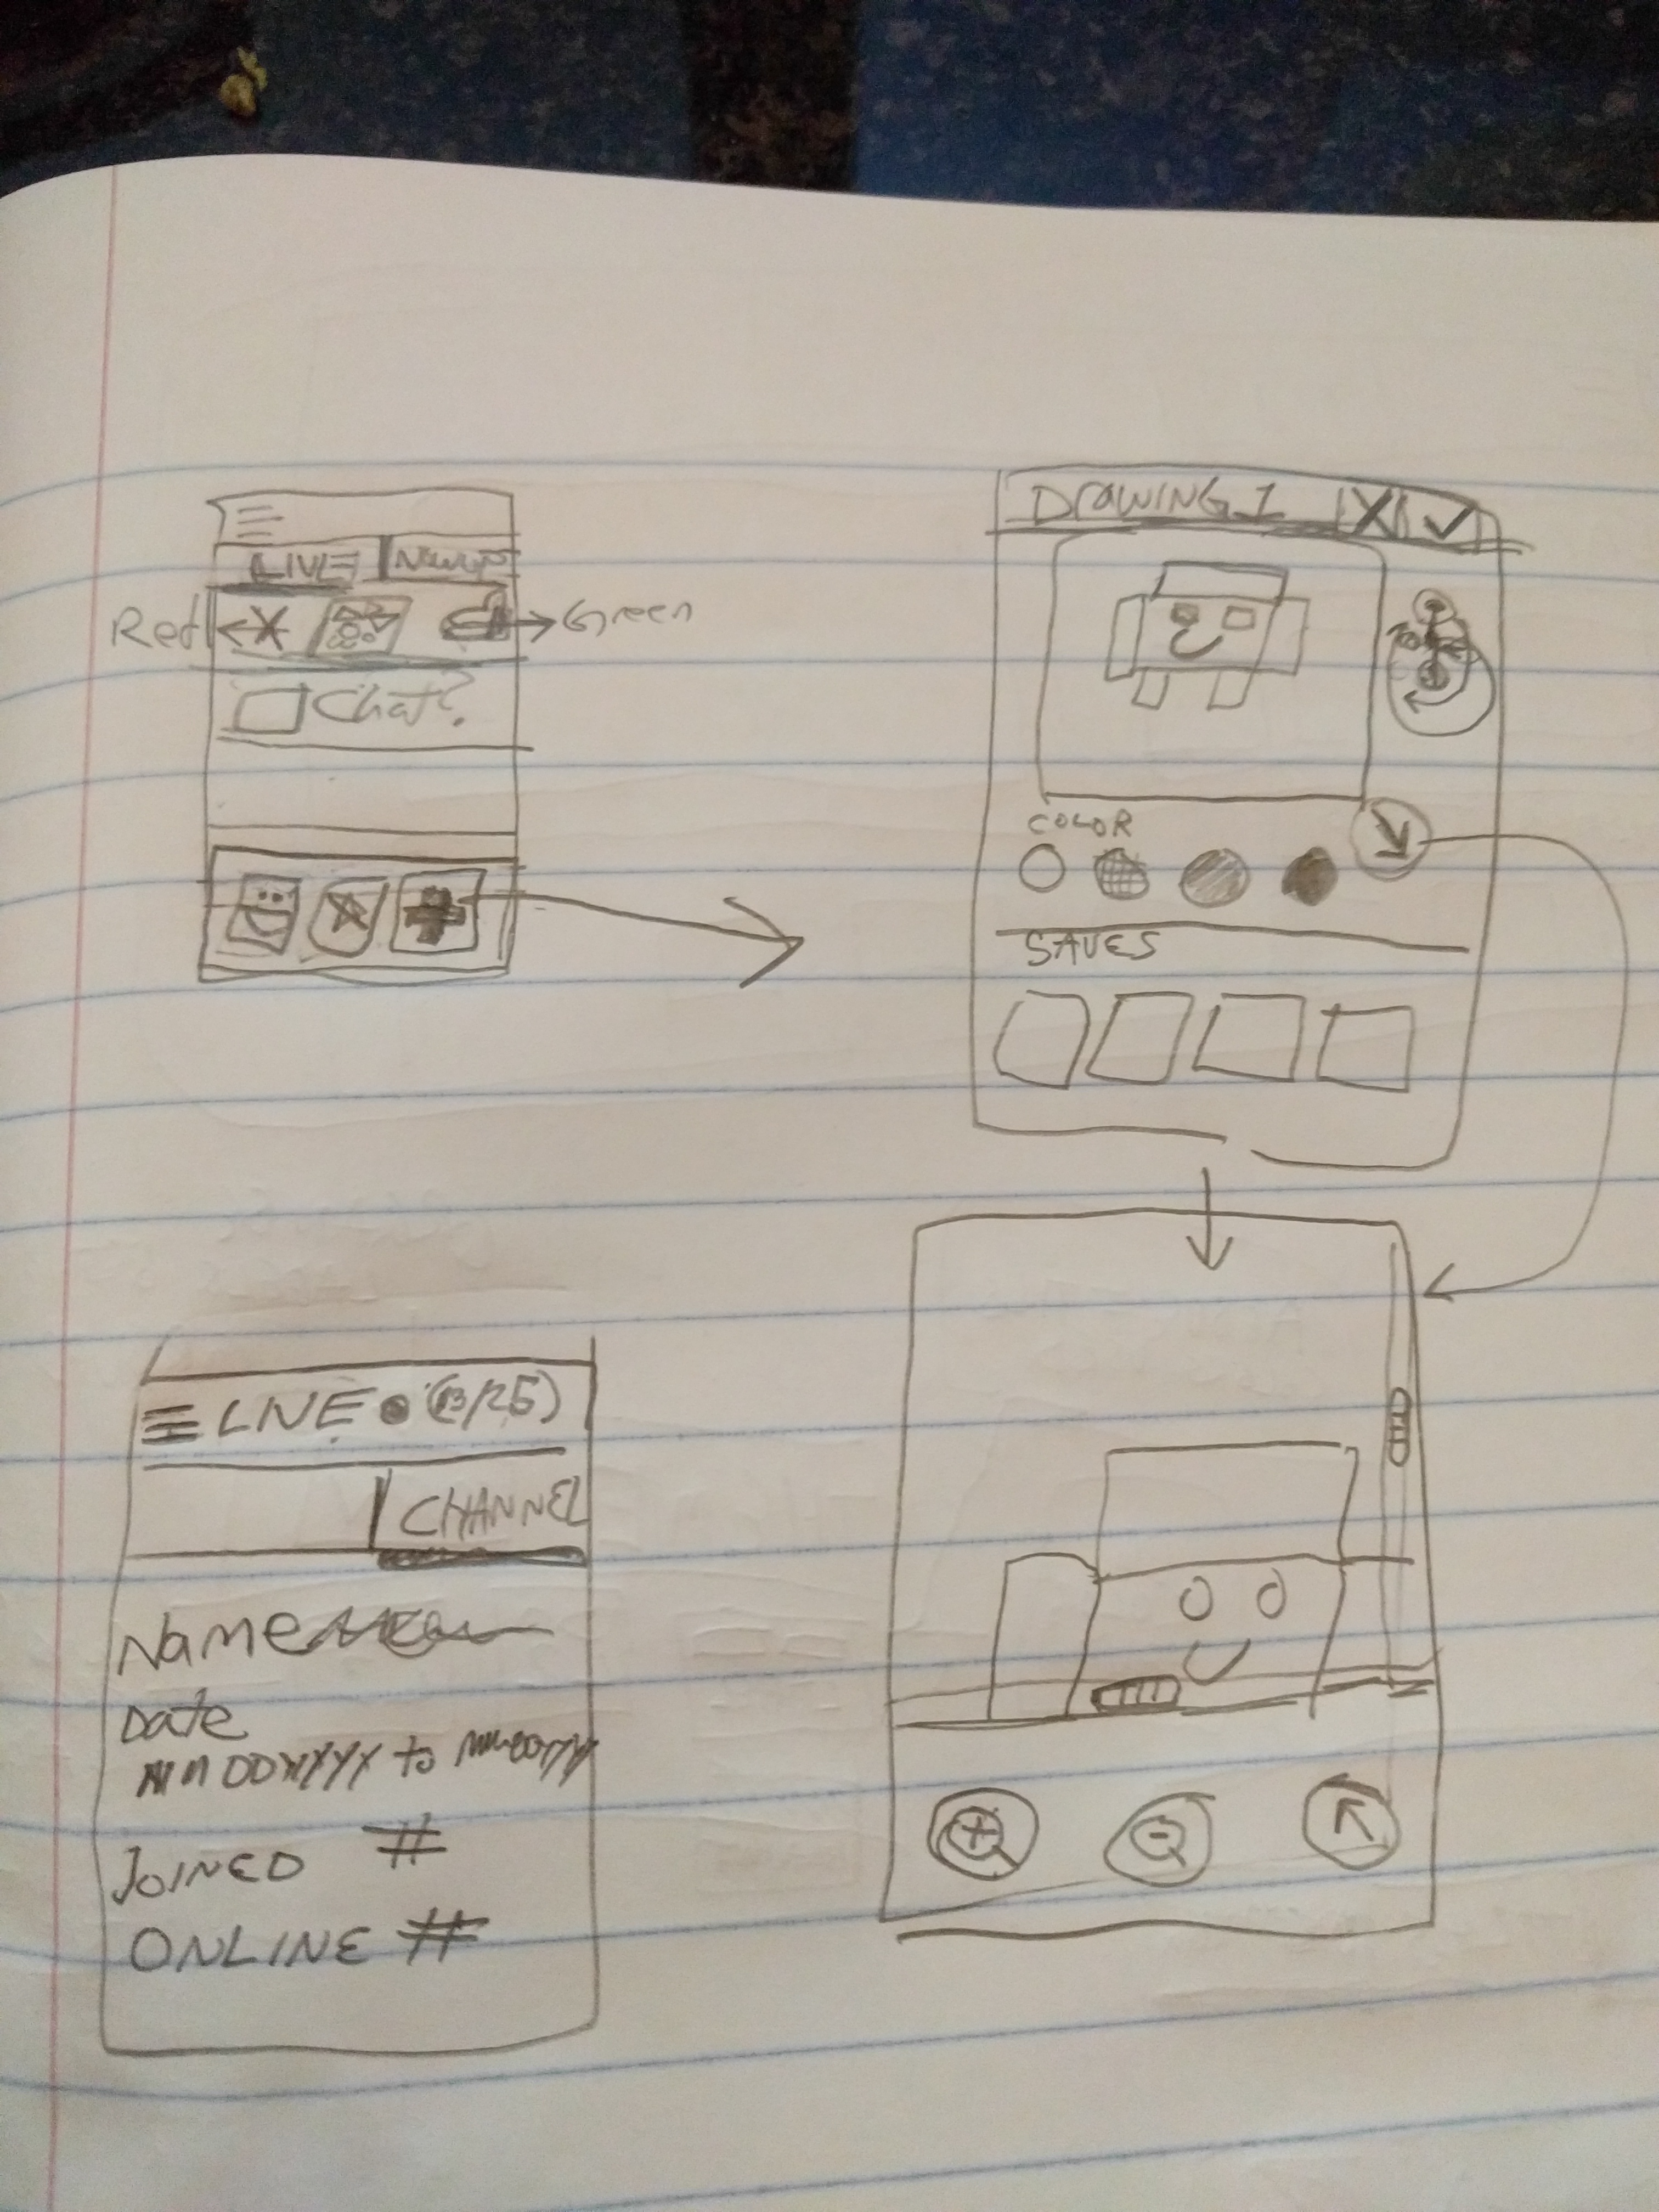 LIVE
Red
Green
Chat?
DrawING 1
COLOR
SAVES
LIVE (13/25)
CHANNEL
Name
Date
MMDDYYYY to
JOINED #
ONLINE #